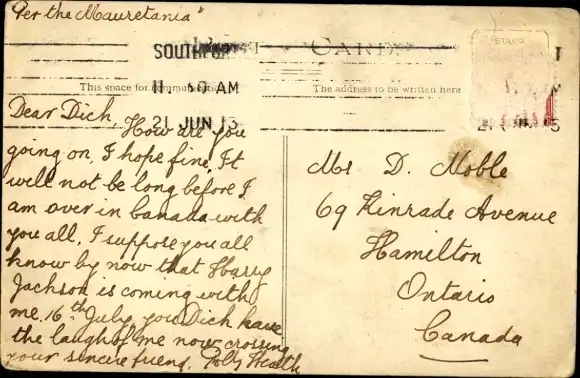 "Per the Mauretania"
SOUTHPORT
CARD
STAMP
11. 30 AM
This space for communication
The address to be written here
21 JUN 13
Dear Dick,
How are you
going on, I hope fine, It
will not be long before I
am over in Canada with
you all, I suppose you all
know by now that Harry
Jackson is coming with
me, 16th July, you Dick have
the laugh of me now crossing
your sincere friend. Polly Heath
Mr D. Moble
69 Kinrade Avenue
Hamilton
Ontario
Canada